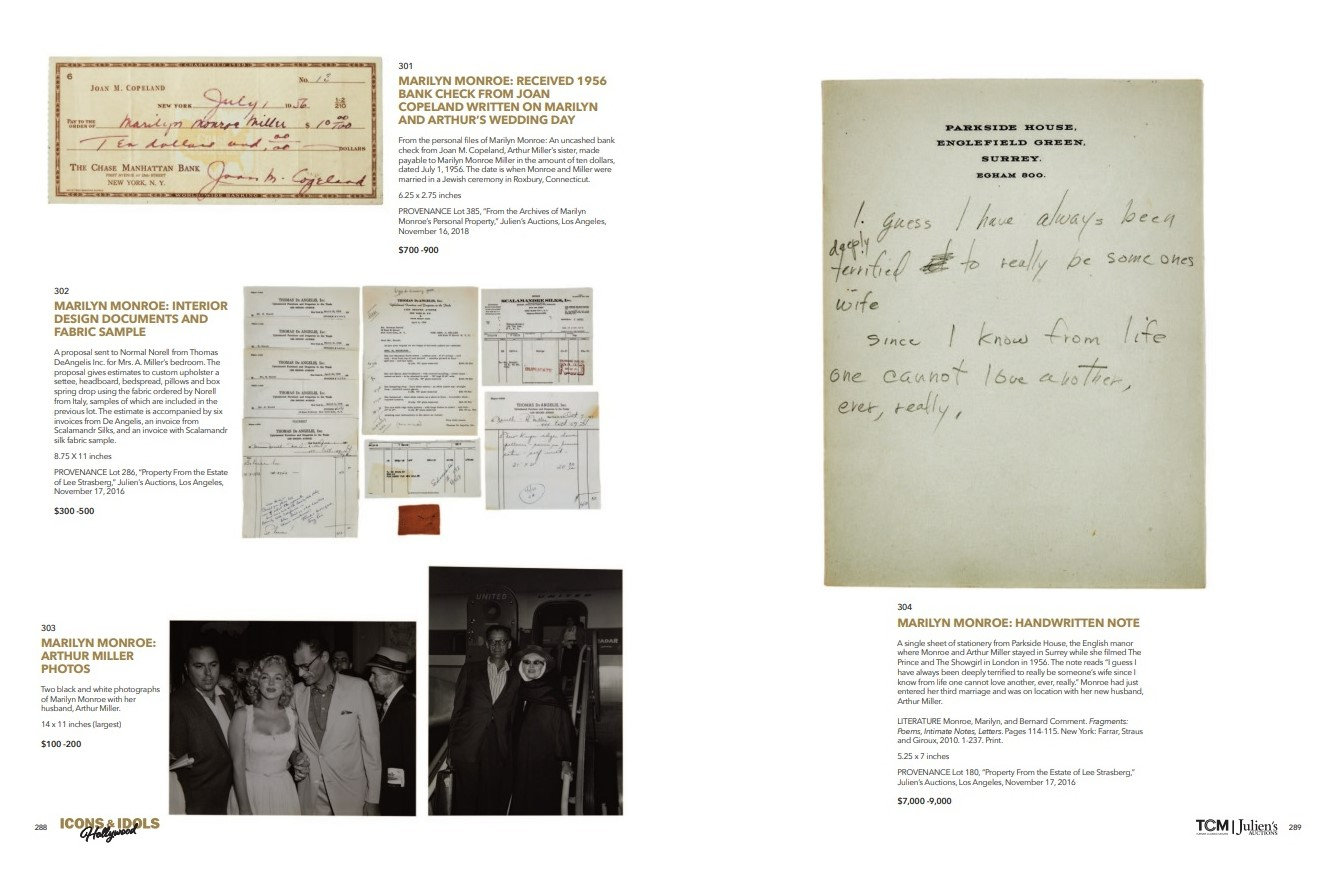 6
No. 13
JOAN M. COPELAND
NEW YORK July 1, 1956
1-2
210
PAY TO THE
ORDER OF Marilyn Monroe Miller $ 10 00/100
Ten dollars and 00/00 DOLLARS
THE CHASE MANHATTAN BANK
NEW YORK, N. Y.
Joan M. Copeland
301
MARILYN MONROE: RECEIVED 1956
BANK CHECK FROM JOAN
COPELAND WRITTEN ON MARILYN
AND ARTHUR'S WEDDING DAY
From the personal files of Marilyn Monroe: An uncashed bank
check from Joan M. Copeland, Arthur Miller's sister, made
payable to Marilyn Monroe Miller in the amount of ten dollars,
dated July 1, 1956. The date is when Monroe and Miller were
married in a Jewish ceremony in Roxbury, Connecticut.
6.25 x 2.75 inches
PROVENANCE Lot 385, "From the Archives of Marilyn
Monroe's Personal Property," Julien's Auctions, Los Angeles,
November 16, 2018
$700 -900
302
MARILYN MONROE: INTERIOR
DESIGN DOCUMENTS AND
FABRIC SAMPLE
A proposal sent to Normal Norell from Thomas
DeAngelis Inc. for Mrs. A. Miller's bedroom. The
proposal gives estimates to custom upholster a
settee, headboard, bedspread, pillows and box
spring drop using the fabric ordered by Norell
from Italy, samples of which are included in the
previous lot. The estimate is accompanied by six
invoices from De Angelis, an invoice from
Scalamandr Silks, and an invoice with Scalamandr
silk fabric sample.
8.75 X 11 inches
PROVENANCE Lot 286, "Property From the Estate
of Lee Strasberg," Julien's Auctions, Los Angeles,
November 17, 2016
$300 -500
THOMAS DE ANGELIS, INC.
THOMAS DE ANGELIS, INC.
THOMAS DE ANGELIS, INC.
THOMAS DE ANGELIS, INC.
THOMAS DE ANGELIS, INC.
THOMAS DE ANGELIS, INC.
SCALAMANDRE SILKS, INC.
THOMAS DE ANGELIS, INC.
303
MARILYN MONROE:
ARTHUR MILLER
PHOTOS
Two black and white photographs
of Marilyn Monroe with her
husband, Arthur Miller.
14 x 11 inches (largest)
$100 -200
UNITED
RADAR
288
ICONS & IDOLS
Hollywood
PARKSIDE HOUSE,
ENGLEFIELD GREEN,
SURREY.
EGHAM 800.
I guess I have always been
deeply
terrified to really be someones
wife
since I know from life
one cannot love another,
ever, really,
304
MARILYN MONROE: HANDWRITTEN NOTE
A single sheet of stationery from Parkside House, the English manor
where Monroe and Arthur Miller stayed in Surrey while she filmed The
Prince and The Showgirl in London in 1956. The note reads "I guess I
have always been deeply terrified to really be someone's wife since I
know from life one cannot love another, ever, really." Monroe had just
entered her third marriage and was on location with her new husband,
Arthur Miller.
LITERATURE Monroe, Marilyn, and Bernard Comment. Fragments:
Poems, Intimate Notes, Letters. Pages 114-115. New York: Farrar, Straus
and Giroux, 2010. 1-237. Print.
5.25 x 7 inches
PROVENANCE Lot 180, "Property From the Estate of Lee Strasberg,"
Julien's Auctions, Los Angeles, November 17, 2016
$7,000 -9,000
TCM | Julien's
AUCTIONS
289